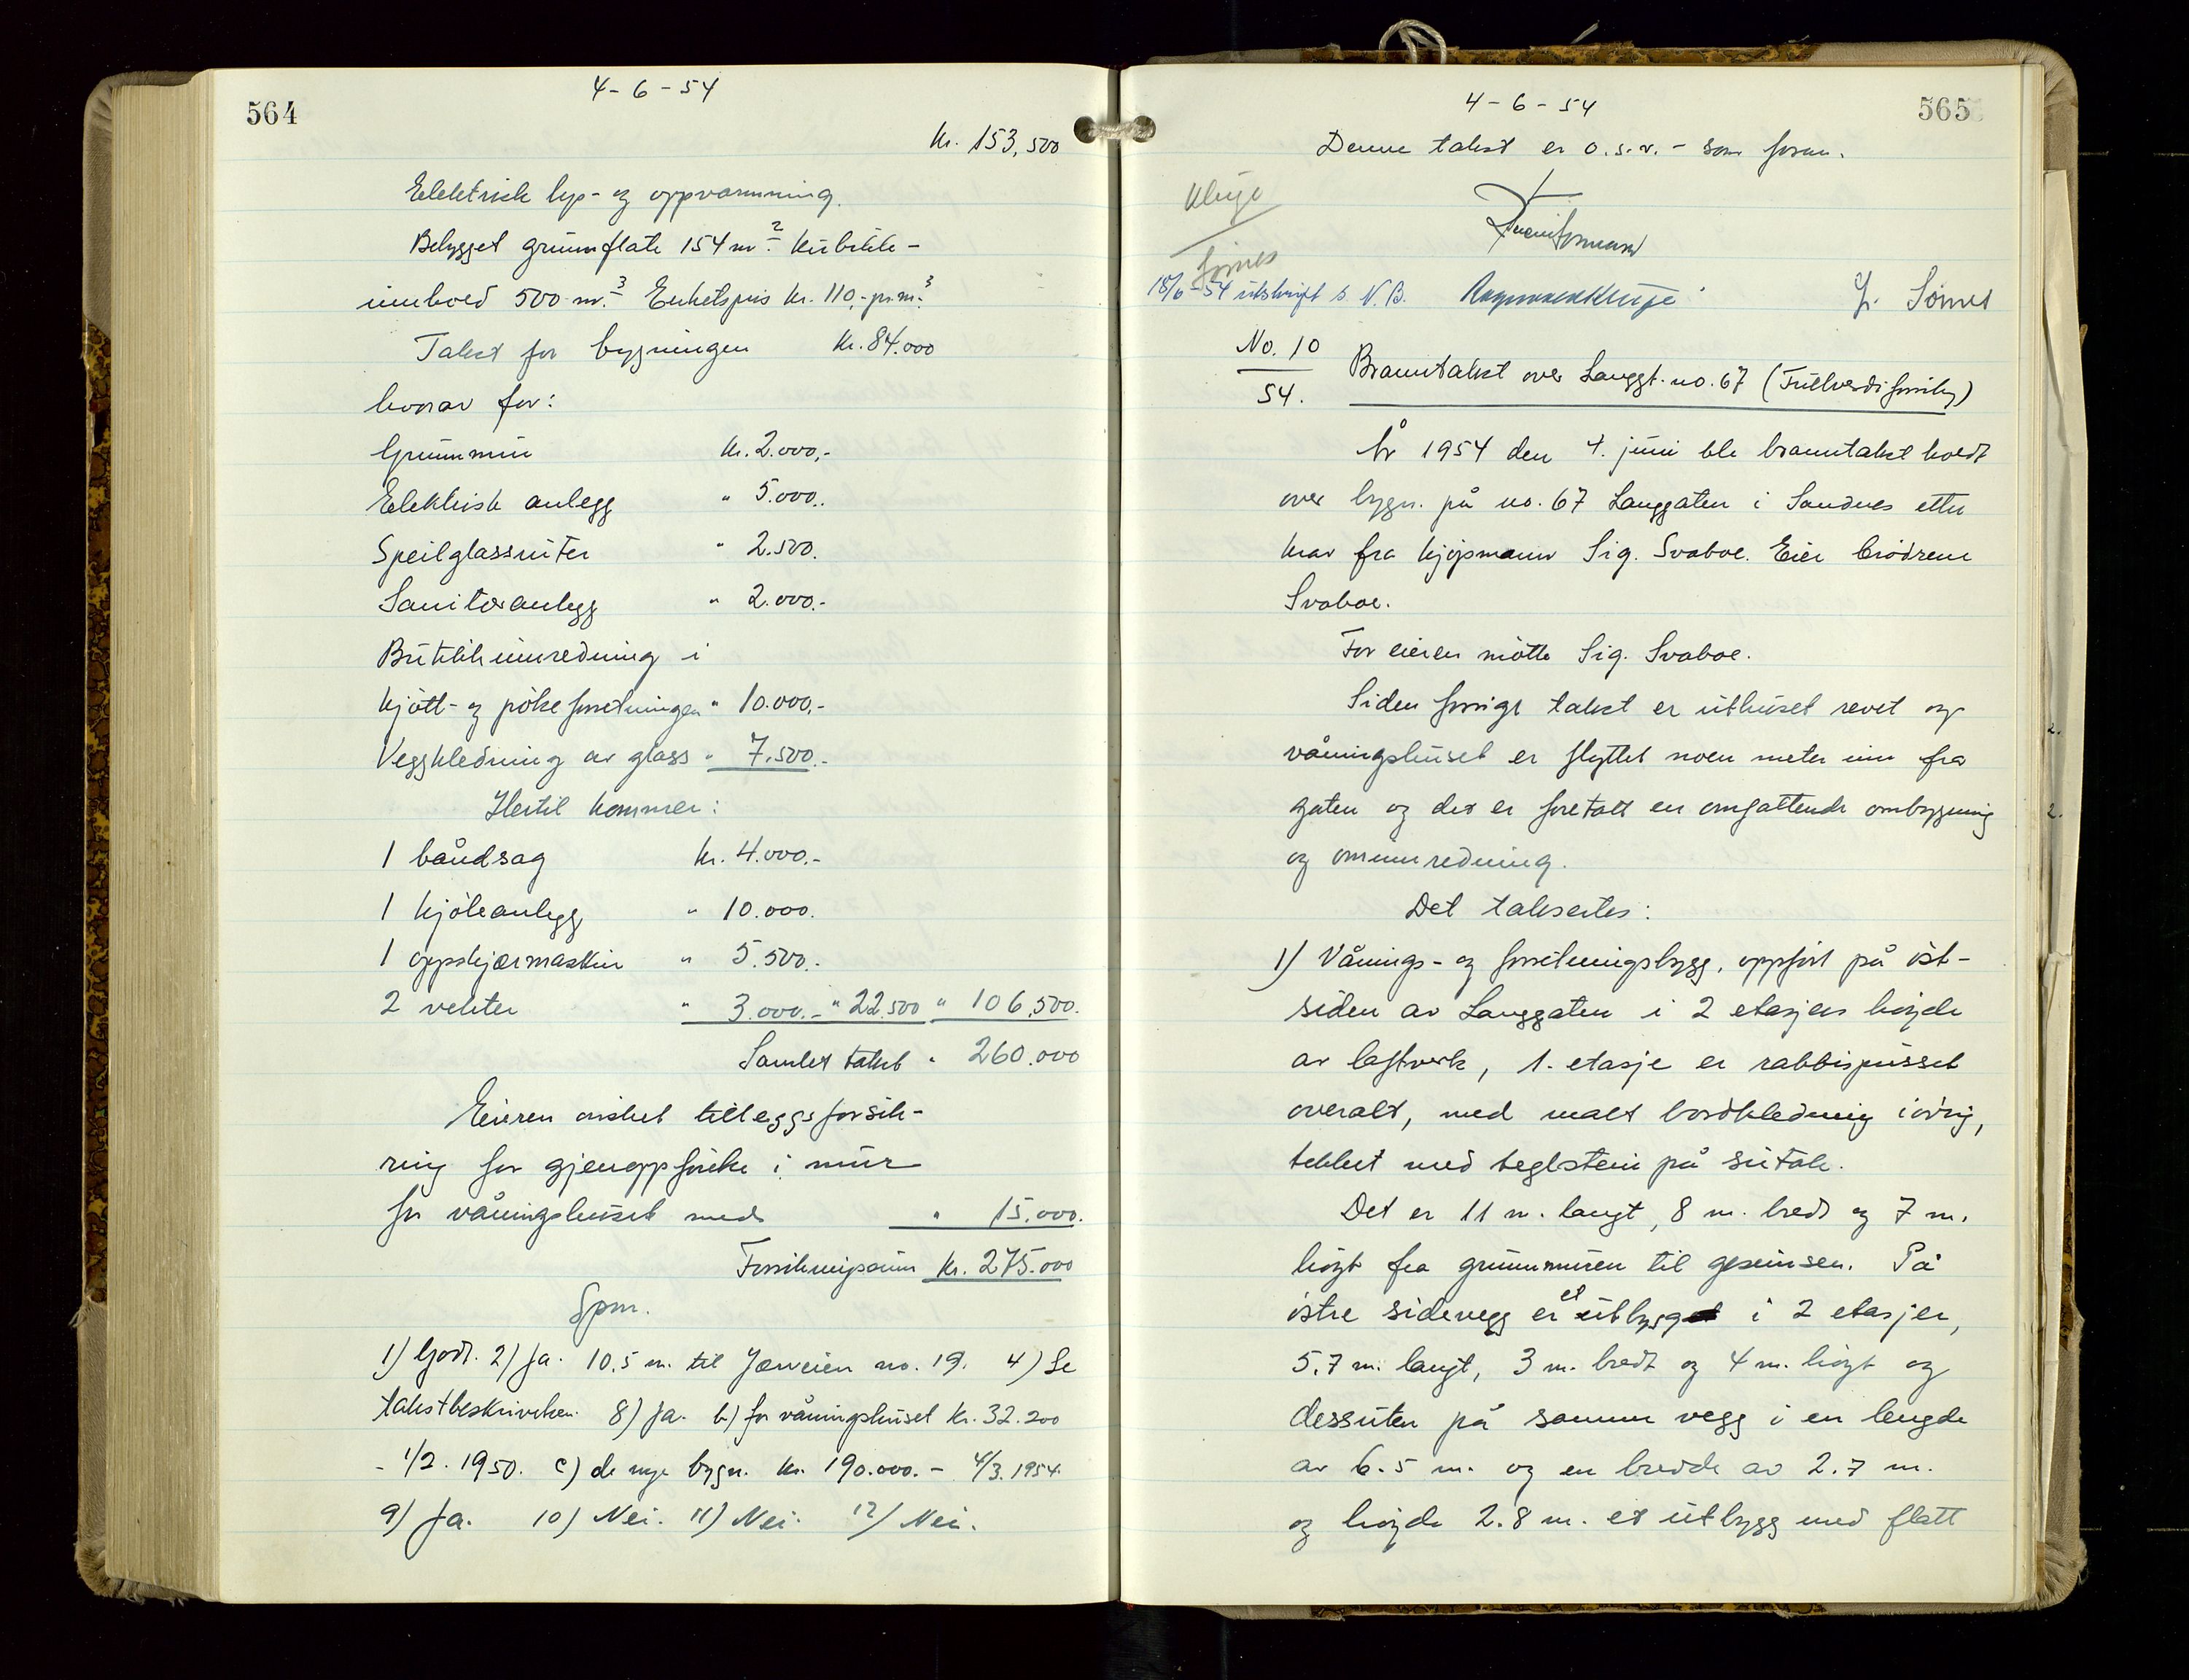 564
4-6-54
Kr. 153,500
Elektrisk lys- og oppvarmning.
Bebygget grunnflate 154 m². Kubikk-
innhold 500 m³. Enhetspris kr. 110,- pr. m³.
Takst for bygningen Kr. 84.000
hvorav for:
Grunnmur Kr. 2.000,-
Elektrisk anlegg " 5.000.
Speilglassruter " 2.500.
Sanitæranlegg " 2.000.-
Butikkinnredning i
kjött- og pölseforretningen " 10.000,-
Veggkledning av glass " 7.500.-
Hertil kommer:
1 båndsag Kr. 4.000.-
1 kjöleanlegg " 10.000.
1 oppskjærmaskin " 5.500.-
2 vekter " 3.000.- " 22.500 " 106,500.
Samlet takst " 260.000
Eieren önsket tilleggsforsik-
ring for gjenoppförelse i mur
for våningshuset med " 15.000.
Forsikringssum Kr. 275.000
Spm.
1) Godt. 2) Ja. 10.5 m. til Jærveien no. 19. 4) Se
takstbeskrivelsen. 8) Ja. b) for våningshuset Kr. 32.200
- 1/2. 1950. c) de nye bygn. Kr. 190.000.- 4/3. 1954.
9) Ja. 10) Nei. 11) Nei. 12) Nei.
565
4-6-54
Denne takst er o.s.v. - som foran.
Kluge
Sömes
18/6-54 utskrift s. N.B. Kluge
Sömes
No. 10
54.
Branntakst over Langgt. no. 67 (Fullverdiforsikr)
År 1954 den 4. juni ble branntakst holdt
over bygn. på no. 67 Langgaten i Sandnes etter
krav fra kjöpmann Sig. Svaboe. Eier brödrene
Svaboe.
For eieren mötte Sig. Svaboe.
Siden forrige takst er uthuset revet og
våningshuset er flyttet noen meter inn fra
gaten og det er foretatt en omfattende ombygning
og ominnredning.
Det takseres:
1) Vånings- og forretningsbygg, oppfört på öst-
siden av Langgaten i 2 etasjers höyde
av laftverk, 1. etasje er rabbitspusset
overalt, med malt bordkledning iövrig,
tekket med teglstein på sutak.
Det er 11 m. langt, 8 m. bredt og 7 m.
höyt fra grunnmuren til gesimsen. På
östre sidevegg er et utbygg i 2 etasjer,
5.7 m. langt, 3 m. bredt og 4 m. höyt og
dessuten på samme vegg i en lengde
av 6.5 m. og en bredde av 2.7 m.
og höyde 2.8 m. et utbygg med flatt
2.
2.